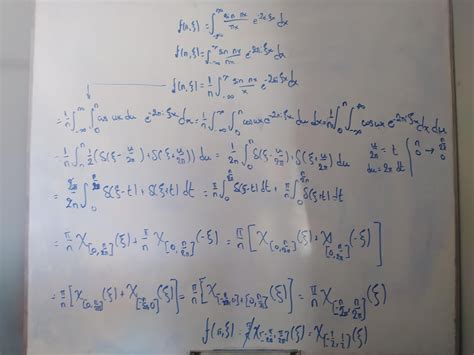 f(n,ξ) = ∫_{-∞}^{∞} sin nx / nx e^{-2iξx} dx
f(n,ξ) = ∫_{-∞}^{∞} sin nx / x e^{-2iξx} dx
f(n,ξ) = 1/n ∫_{-∞}^{∞} sin nx / x e^{-2iξx} dx
= 1/n ∫_{-∞}^{∞} ∫_0^n cos ux du e^{-2πiξx} dx = 1/n ∫_{-∞}^{∞} ∫_0^n cos ux e^{-2πiξx} du dx = 1/n ∫_0^n ∫_{-∞}^{∞} cos ux e^{-2πiξx} dx du
= 1/n ∫_0^n 1/2 (δ(ξ - u/2π) + δ(ξ + u/2π)) du = 1/2n ∫_0^n δ(ξ - u/2π) + δ(ξ + u/2π) du u/2π = t { n → n/2π 0 → 0 du = 2π dt
= 2π/2n ∫_0^{n/2π} δ(ξ-t) + δ(ξ+t) dt = π/n ∫_0^{n/2π} δ(ξ-t) dt + π/n ∫_0^{n/2π} δ(ξ+t) dt
= π/n χ_{[0, n/2π]}(ξ) + π/n χ_{[0, n/2π]}(-ξ) = π/n [χ_{[0, n/2π]}(ξ) + χ_{[0, n/2π]}(-ξ)]
= π/n [χ_{[0, n/2π]}(ξ) + χ_{[-n/2π, 0]}(ξ)] = π/n [χ_{[-n/2π, 0] + [0, n/2π]}(ξ)] = π/n χ_{[-n/2π, n/2π]}(ξ)
f(n,ξ) = χ_{[-π/2π, π/2π]}(ξ) = χ_{[-1/2, 1/2]}(ξ)